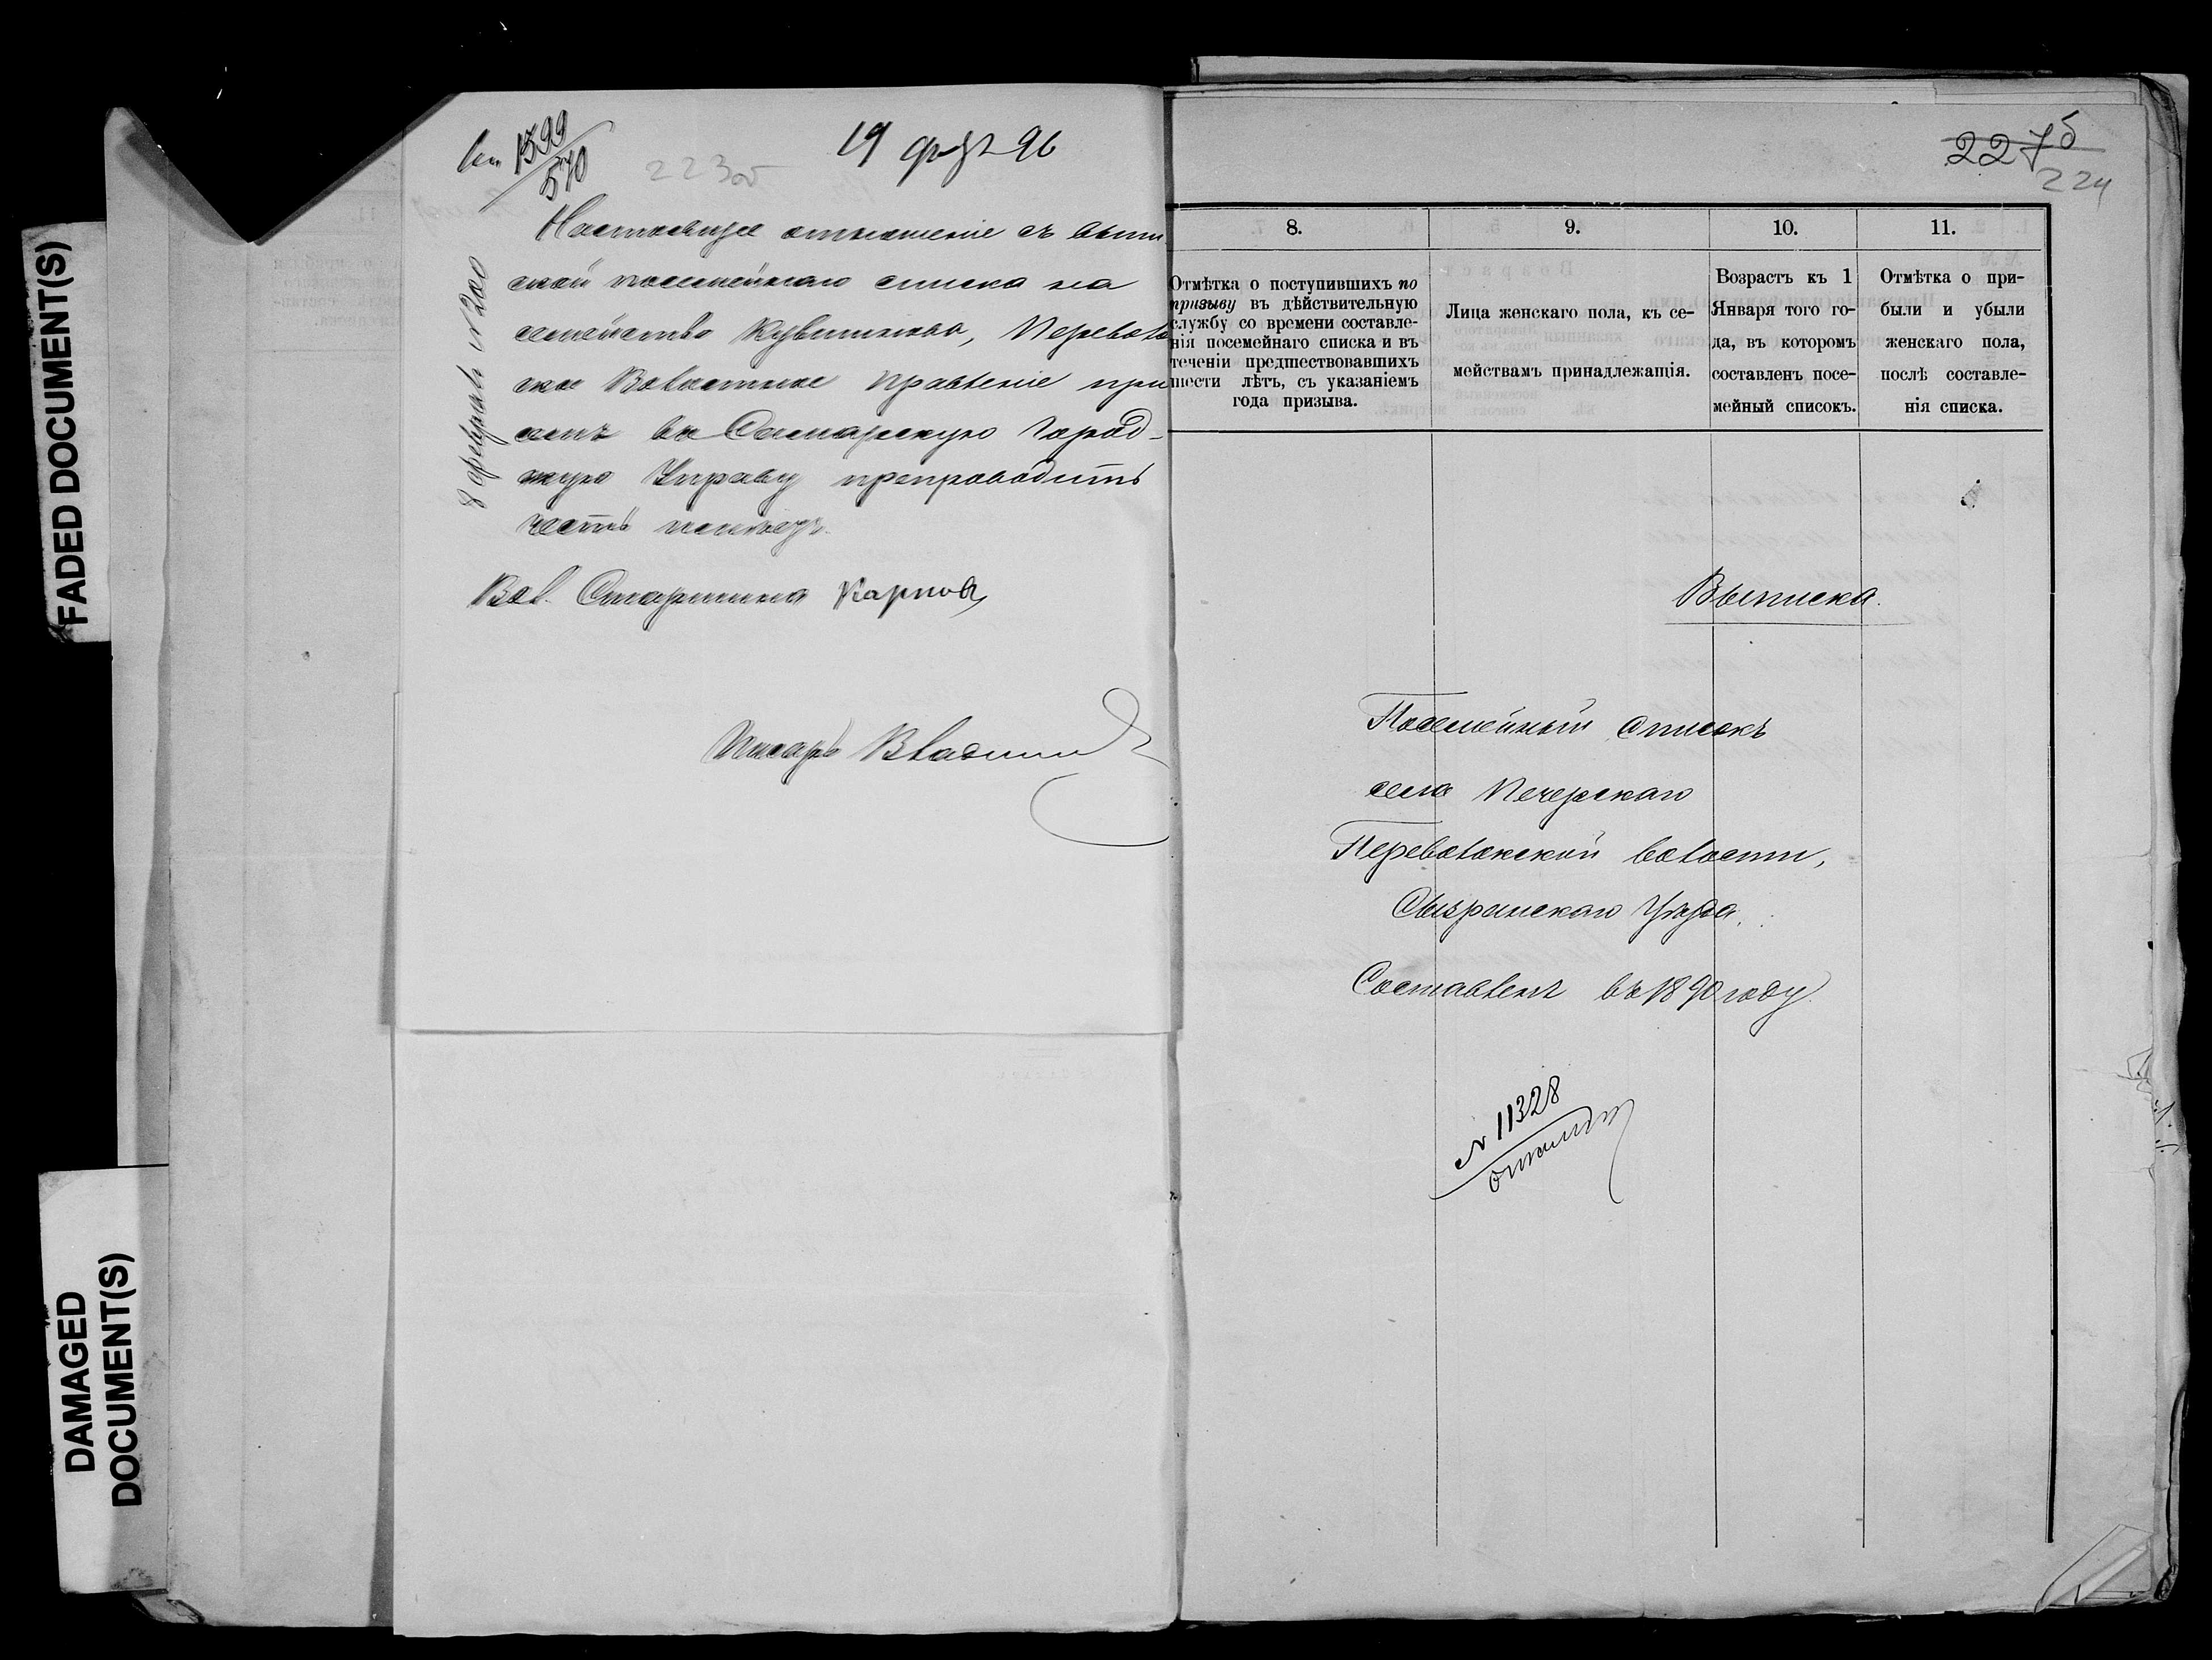 FADED DOCUMENT(S)
DAMAGED
DOCUMENT(S)
1399
570
223об
19 фев 96
8 февраля № 200
Настоящее отношеніе съ выпи
ской посемейнаго списка на
семейство Кувшинова, Переволо
ское Волостное Правленіе при
семъ въ Самарскую Город-
скую Управу препроводить
честь имѣетъ.
Вол. Старшина Карповъ
Писарь
2275
224
8.
9.
10.
11.
Отмѣтка о поступившихъ по
призыву въ дѣйствительную
службу со времени составле-
нія посемейнаго списка и въ
теченіи предшествовавшихъ
шести лѣтъ, съ указаніемъ
года призыва.
Лица женскаго пола, къ се-
мействамъ принадлежащія.
Возрастъ къ 1
Января того го-
да, въ которомъ
составленъ посе-
мейный списокъ.
Отмѣтка о при-
были и убыли
женскаго пола,
послѣ составле-
нія списка.
Выписка.
Посемейный списокъ
села Печерскаго
Переволокской волости,
Сызранскаго Уѣзда.
Составленъ въ 1890 году.
№ 11328